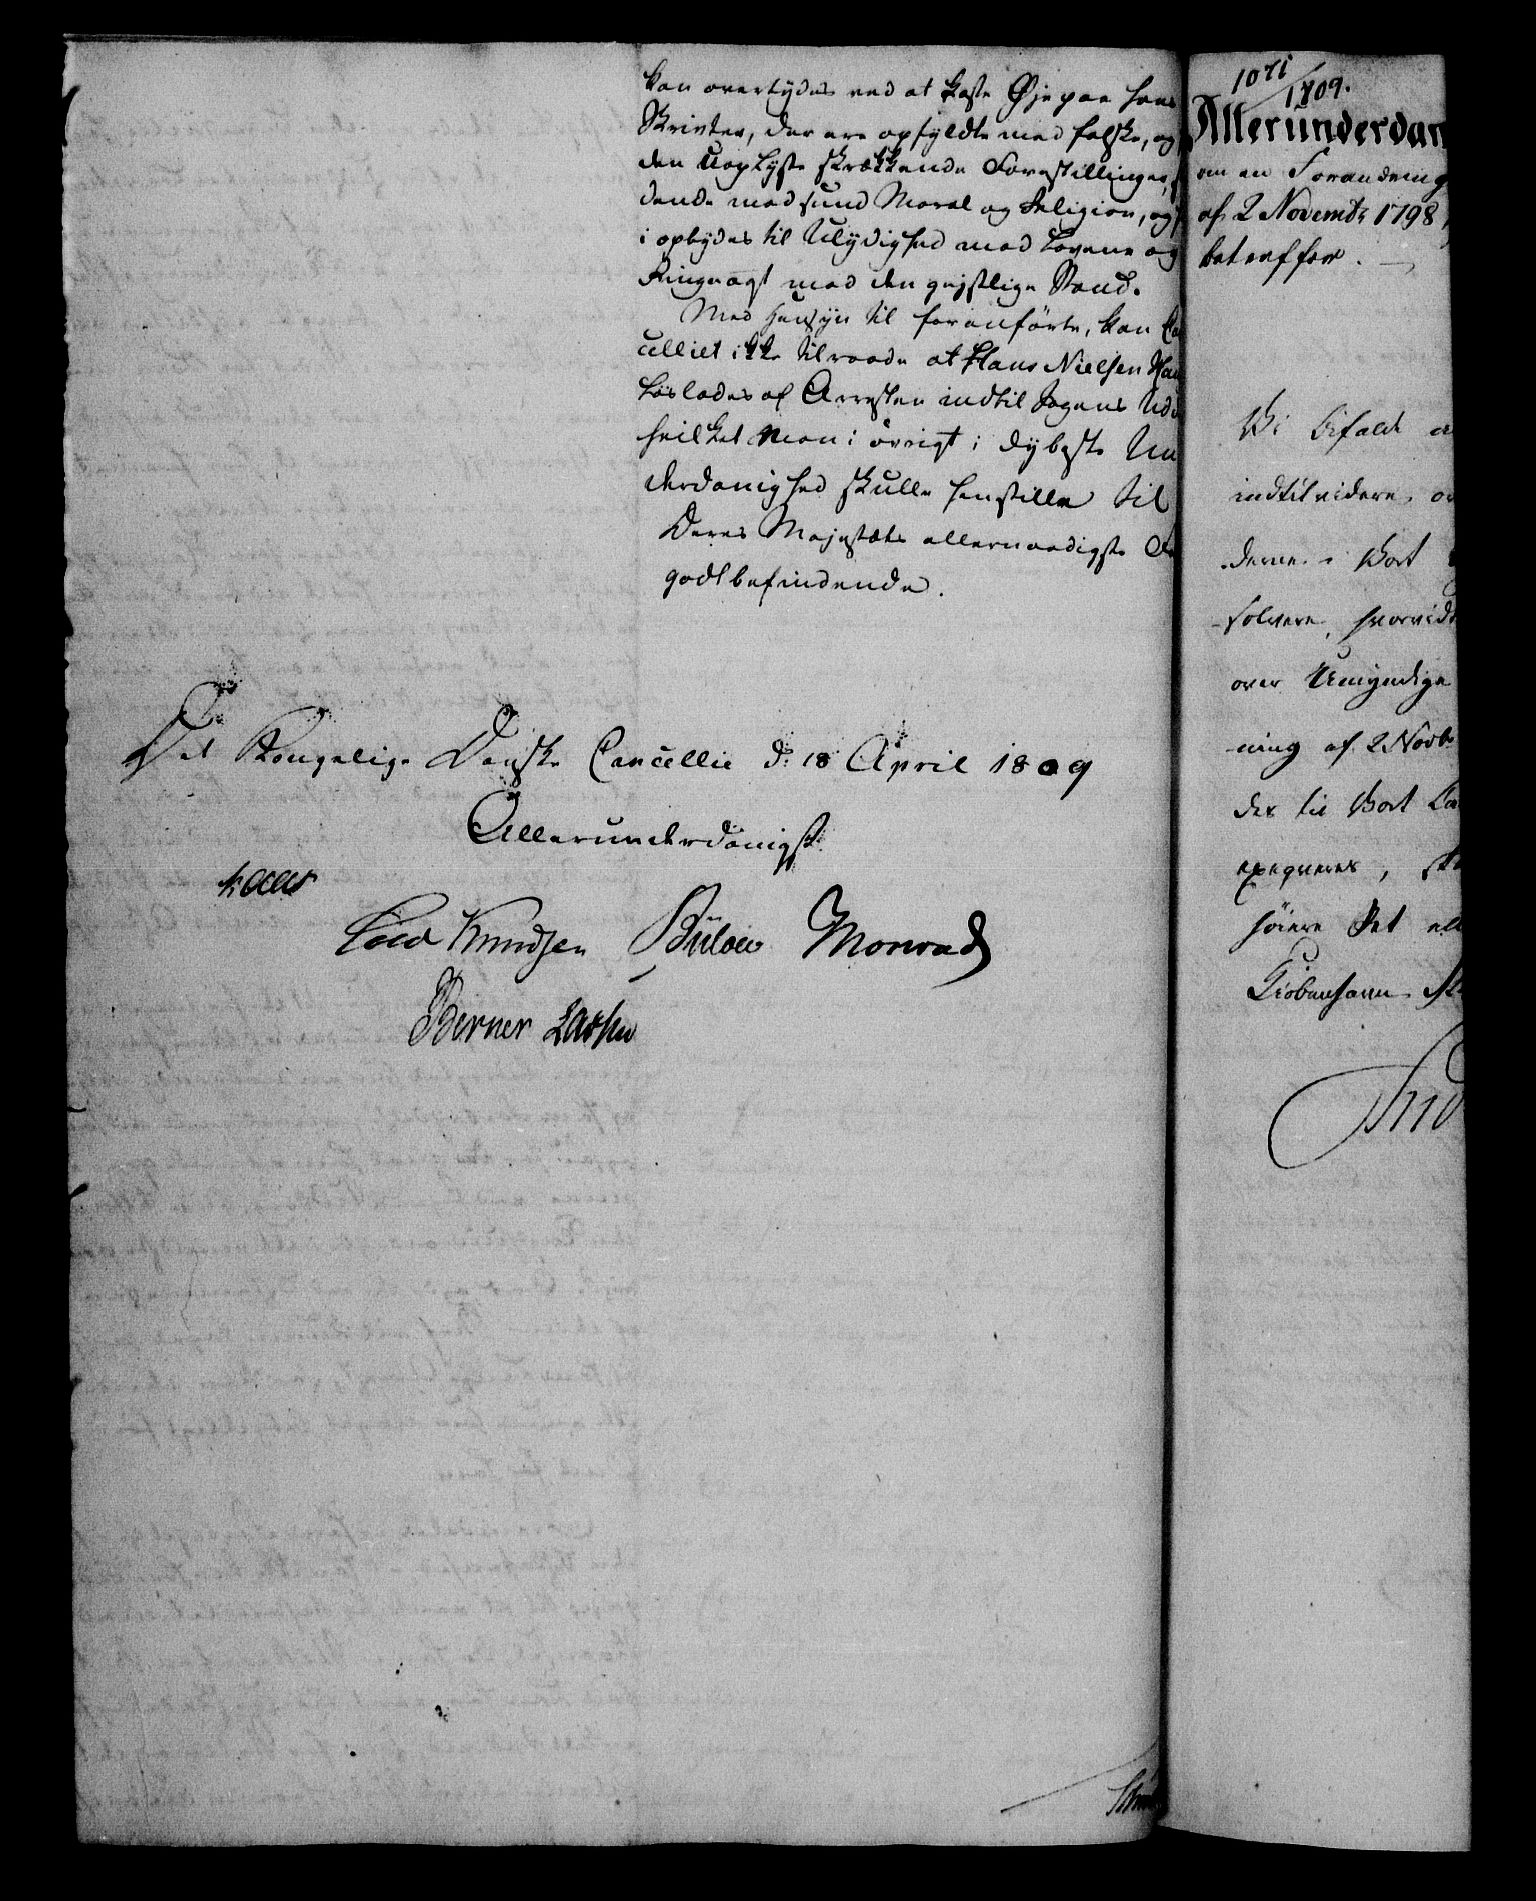 kan overtydes ved at kaste Øje paa hans
Skrivter, der ere opfyldte med falske, og
den Uoplyste skrækkende Forestillinger,
dende mod sund Moral og Religion, og
i opbydes til Ulydighed mod Lovene og
Ringeagt mod den gejstlige Stand.
Med Hensyn til foranførte, kan Can
celliet ikke tilraade at Hans Nielsen Hau
løslades af Arresten indtil Sagens Udf
hvilket man i øvrigt i dybeste Un
derdanighed skulle henstille til
Deres Majestæts allernaadigste
godtbefindende.
Det Kongelige Danske Cancellie d: 18 April 1809
Allerunderdanigst
Kaas
Cold Knudsen Bülow Monrad
Berner Lassen
1071/1809.
Allerunderdan
om en Forandring
af 2 Novembr 1798,
betreffer.
Vi bifalde
indtil videre
derne i Vort
solvere, hvorvidt
over Umyndige
ning af 2 Novbr
der til Vort Can
exeqveres,
høiere Ret
Kiøbenhavn